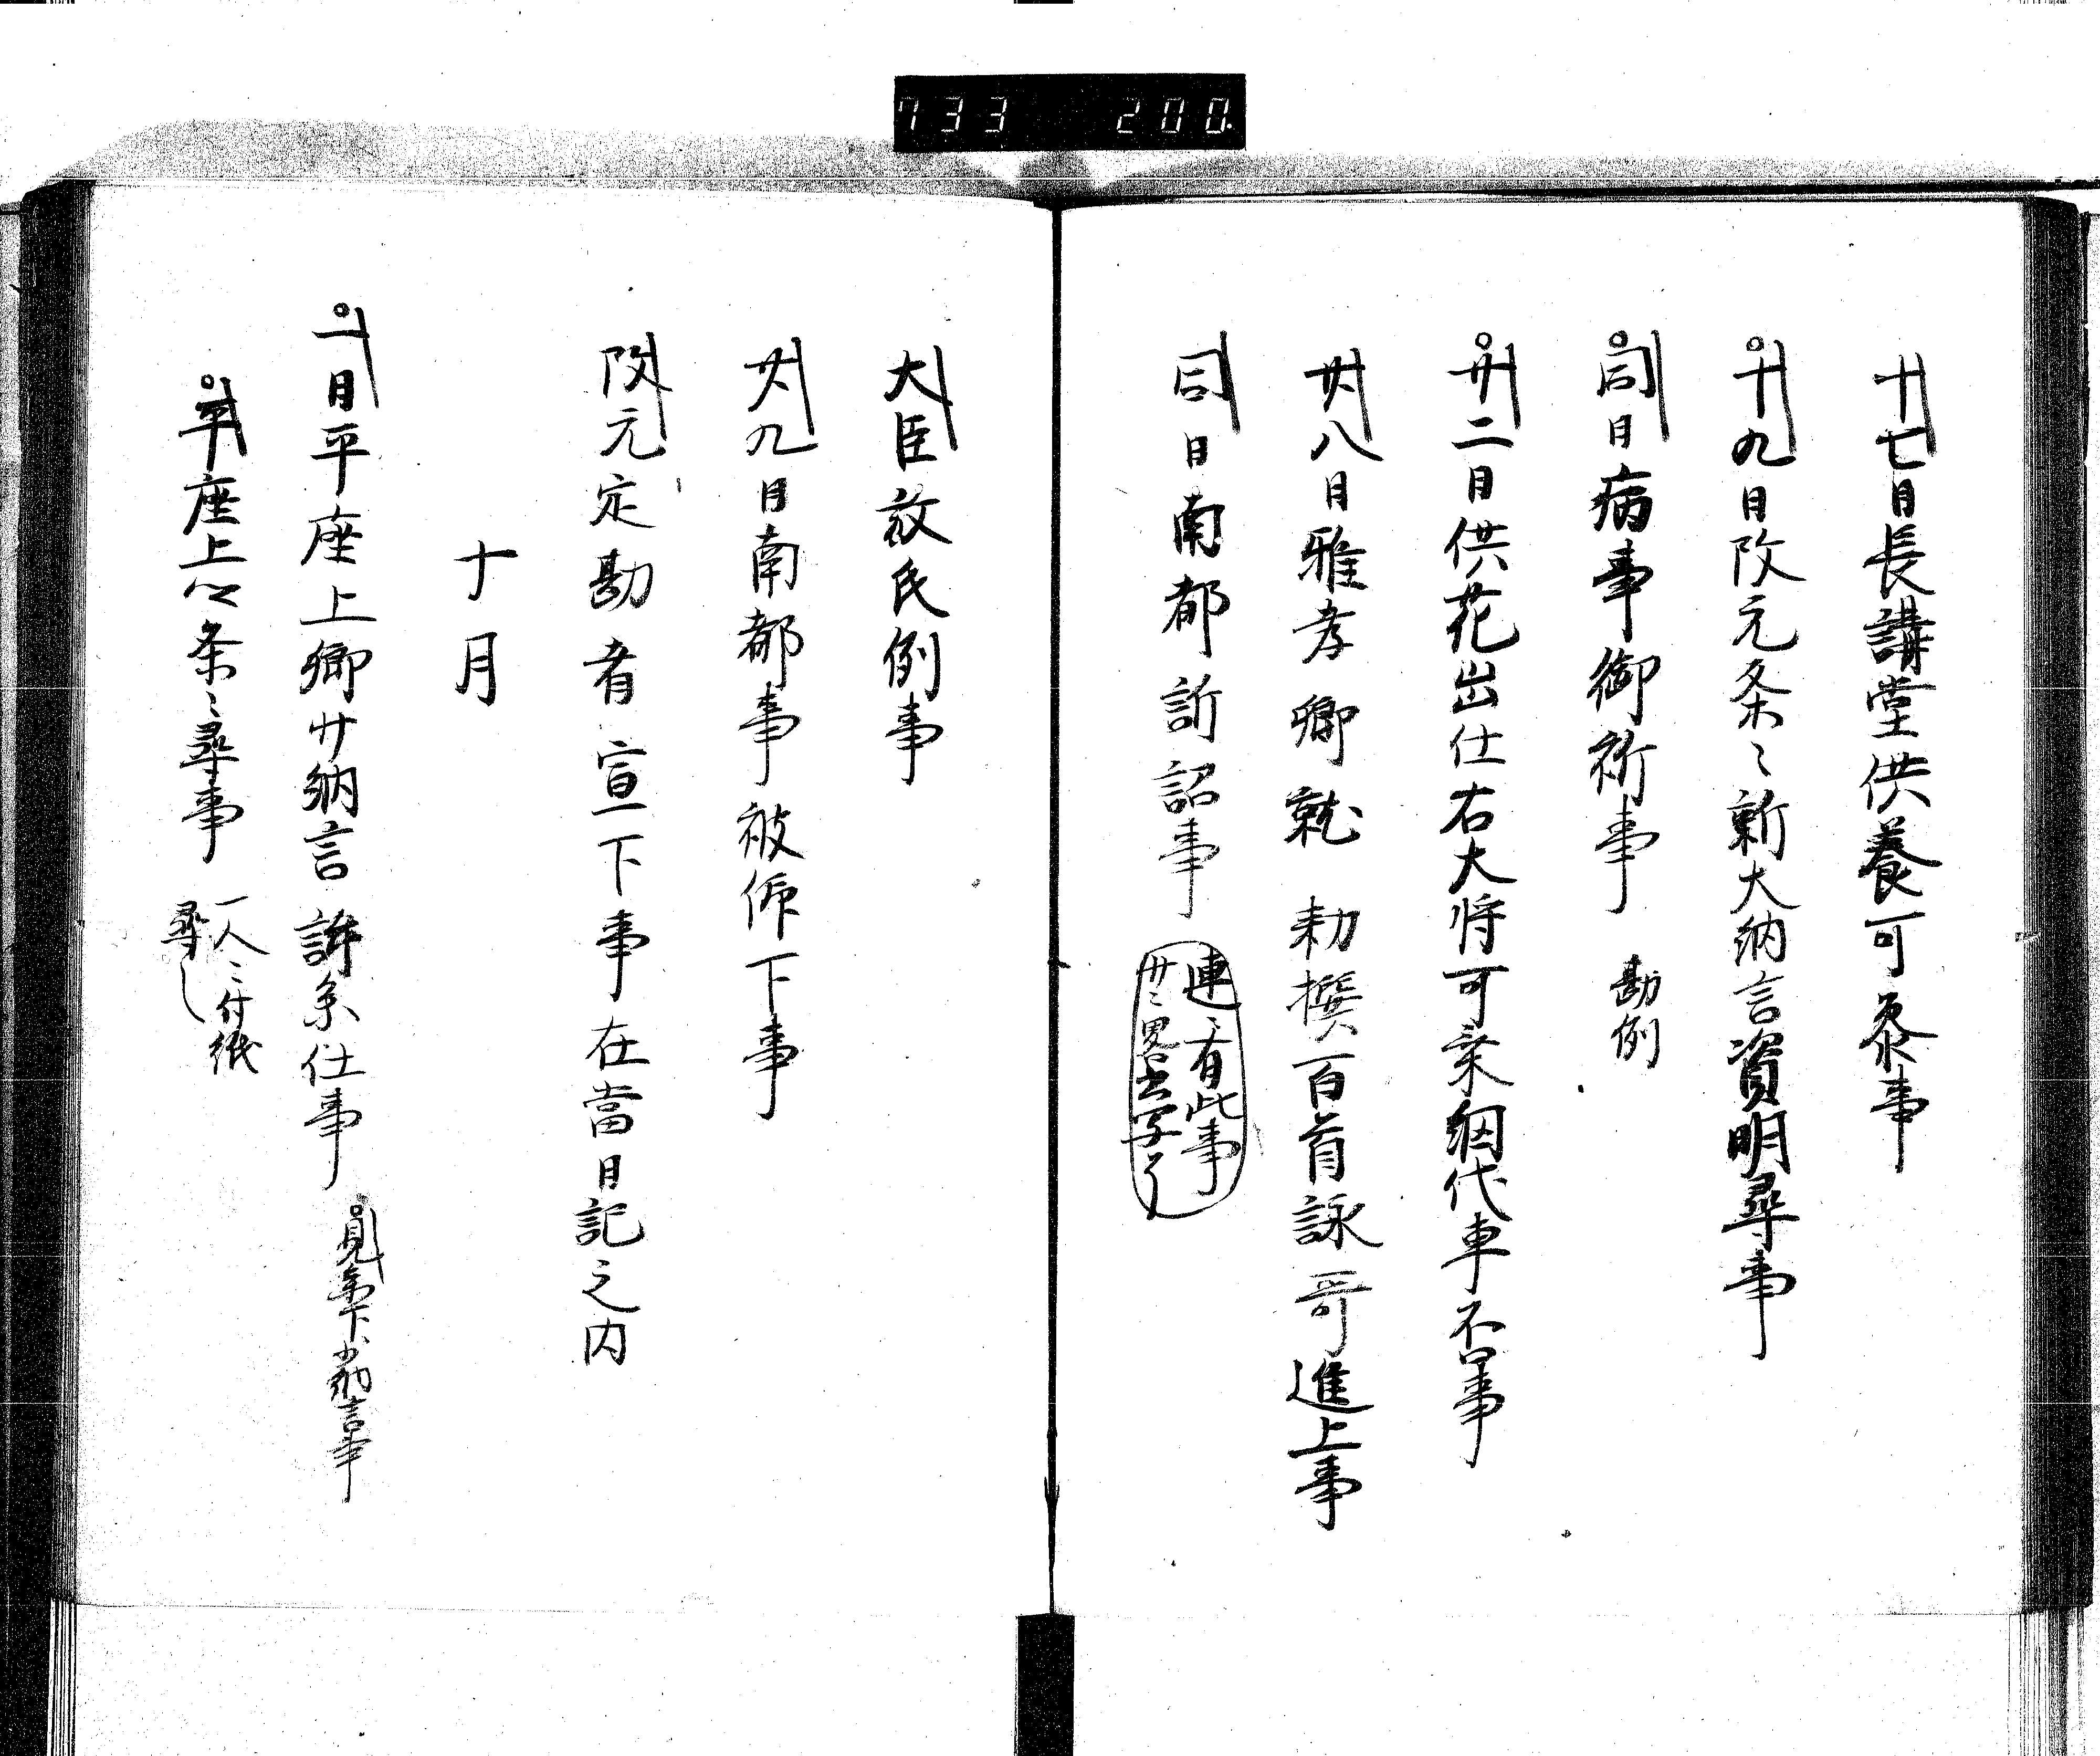 733 200
十七日長講堂供養可参事
十九日改元条々新大納言資明尋事
同日病事御祈事 勘例
廿二日供花出仕右大将可乗網代車不事
廿八日雅孝卿就 勅撰百首詠哥進上事
同日南都訴詔事 連々有此事
大臣放氏例事
廿九日南都事被仰下事
改元定勘者宣下事在當日記之内
十月
一日平座上卿中納言 参仕事
平座上卿条々尋事 一人々付紙
尋之